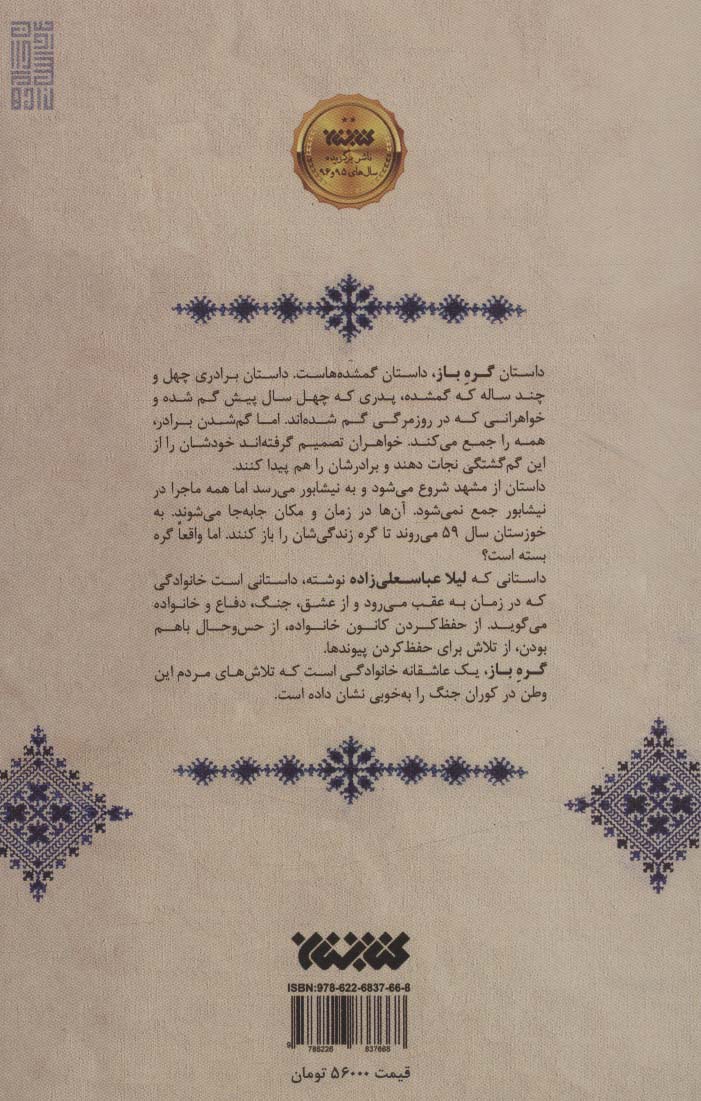 کتابستان
ناشر برگزیده
سال‌های ۹۵ و ۹۶
داستان گـرهِ بـاز، داستان گمشده‌هاست. داستـان بـرادری چهل و
چند سـاله کـه گمشده، پـدری کـه چهـل سـال پیـش گـم شـده و
خواهرانـی کـه در روزمرگـی گـم شـده‌اند. امـا گم‌شـدن بـرادر،
همه را جمـع می‌کند. خواهـران تصمیـم گرفته‌اند خودشـان را از
این گم‌گشتگی نجات دهند و برادرشان را هم پیدا کنند.
داستان از مشهد شروع می‌شود و به نیشابور می‌رسد اما همه ماجرا در
نیشابور جمع نمی‌شود. آن‌ها در زمان و مکان جابه‌جا می‌شوند. به
خوزستان سال ۵۹ می‌روند تا گره زندگی‌شان را باز کنند. اما واقعاً گره
بسته است؟
داستانی که لیلا عباسـعلی‌زاده نوشته، داستانی است خانوادگی
که در زمان به عقب می‌رود و از عشق، جنگ، دفاع و خانواده
می‌گویـد. از حفظ‌کـردن کانـون خانـواده، از حس‌وحال باهـم
بودن، از تلاش برای حفظ‌کردن پیوندها.
گـرهِ بـاز، یـک عاشـقانه خانوادگـی اسـت کـه تلاش‌هـای مـردم این
وطن در کوران جنگ را به‌خوبی نشان داده است.
کتابستان
ISBN:978-622-6837-66-8
9 786226 837668
قیمت ۵۶۰۰۰ تومان